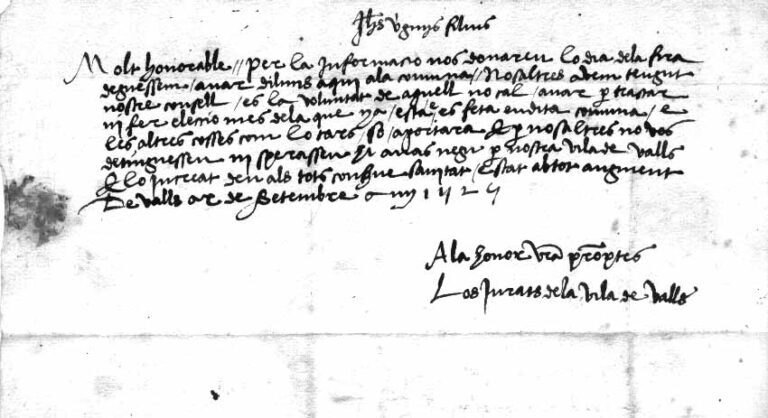 Jhs v̄ginis filius
Molt honorable // per la informacio nos donareu lo dia dela fira
deguessem / anar diluns aqui ala comuna // Nosaltres adem tengut
nostre consell / es la voluntat de aquell no cal / anar p tractar
ni fer eleccio mes dela que ya / esta / es feta en dita comuna / e
les altres cosses com lo cars / so / aportara E p nosaltres no vos
detinguessen ni sperassen hi anas negu p nostra vila de valls
E lo increat deu als tots conserve sanitat / Estat ab tot augment
De valls a de Setembre
Ala honor vra promptes
Los Jurats de la vila de valls